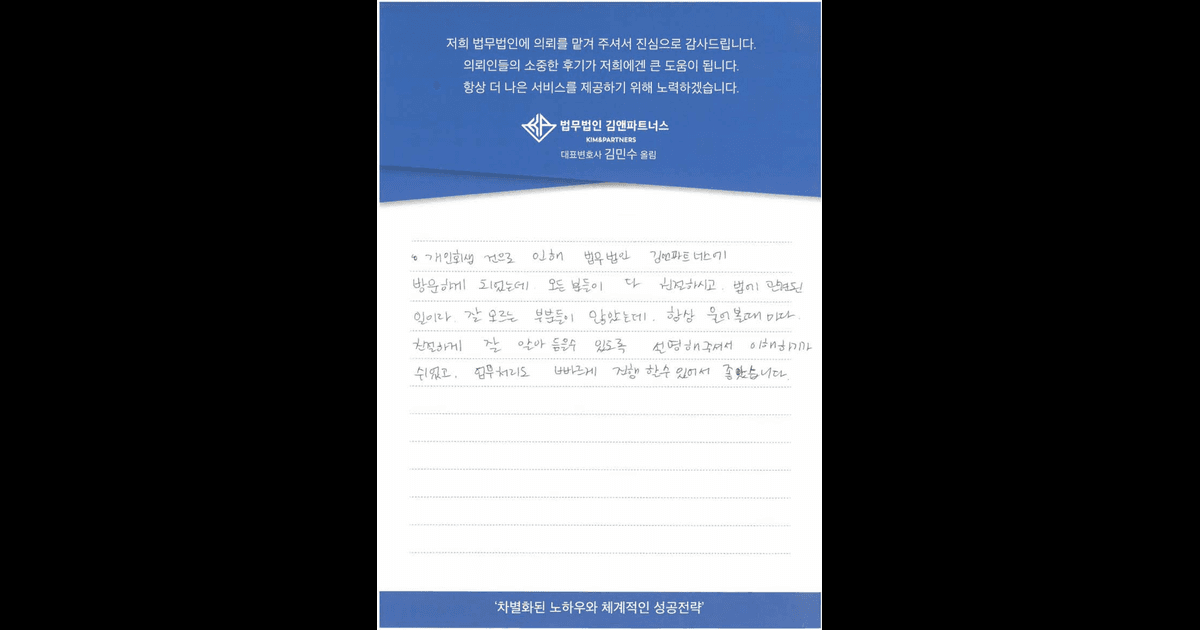 저희 법무법인에 의뢰를 맡겨 주셔서 진심으로 감사드립니다.
의뢰인들의 소중한 후기가 저희에겐 큰 도움이 됩니다.
항상 더 나은 서비스를 제공하기 위해 노력하겠습니다.
법무법인 김앤파트너스
KIM&PARTNERS
대표변호사 김민수 올림
개인회생 건으로 인해 법무법인 김앤파트너스에
방문하게 되었는데. 모든 분들이 다 친절하시고. 법에 관련된
일이라. 잘 모르는 부분들이 많았는데. 항상 물어볼때 마다.
친절하게 잘 알아 들을수 있도록 설명해주셔서 이해하기가
쉬웠고. 업무처리도 빠르게 진행 할수 있어서 좋았습니다.
'차별화된 노하우와 체계적인 성공전략'